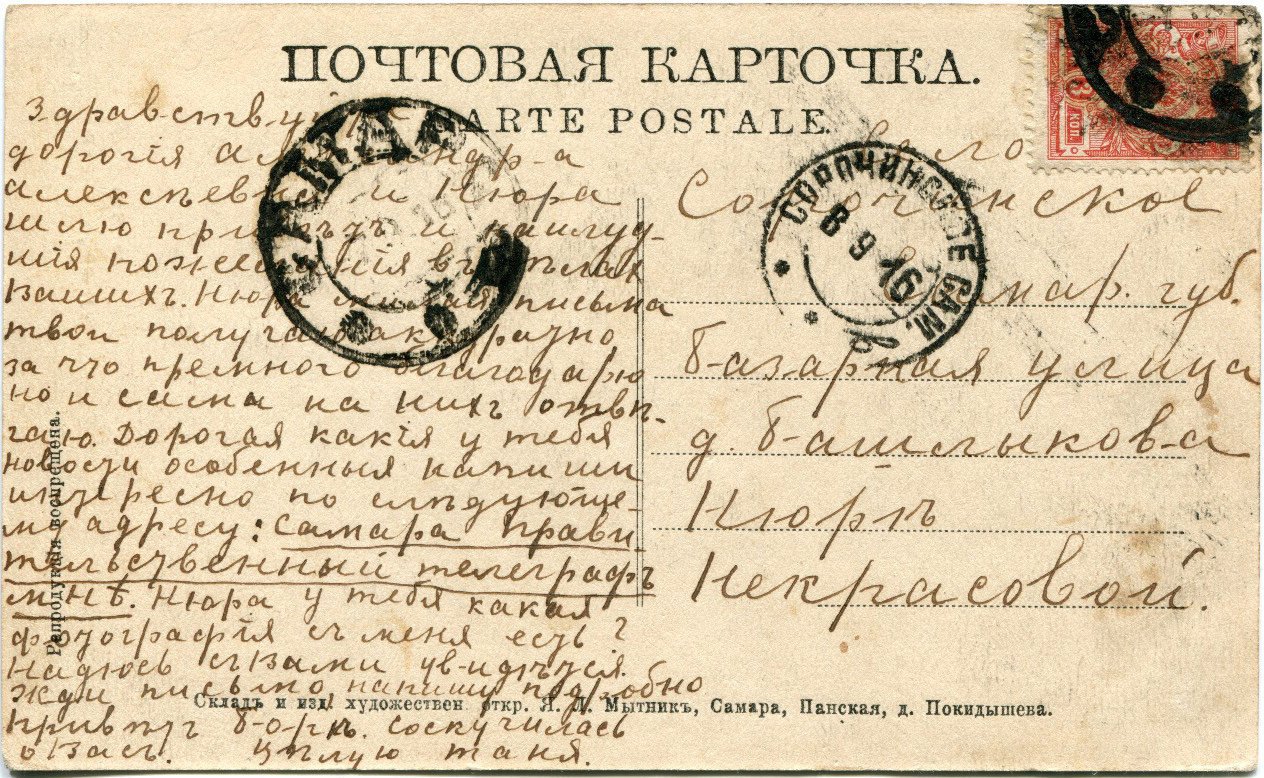 ПОЧТОВАЯ КАРТОЧКА.
CARTE POSTALE.
Здравствуйте
дорогія Александра
Алексѣевна и Нюра
шлю привѣтъ и наилуч-
шія пожеланія въ дѣлах
Вашихъ. Нюра милая письма
твои получаю аккуратно
за что премного благодарю
но и сама на нихъ отвѣ-
чаю. Дорогая какія у тебя
новости особенныя напиши
интересно по слѣдующе-
му адресу: Самара Прави-
тельственный телеграфъ
мнѣ. Нюра у тебя какая
фотографія съ меня есть?
Надюсь съ Вами увидѣтся.
Жди письмо напишу подробно
Привѣт Борѣ. соскучилась
о Васъ. Цѣлую Таня.
САМАРА
СОРОЧИНСКОЕ САМ.
8 9 16
3 КОП.
Село
Сорочинское
Самар. губ.
Базарная улица
д. Башлыкова
Нюрѣ
Некрасовой.
Репродукція воспрещена.
Складъ и изд. художествен. откр. Я. Л. Мытникъ, Самара, Панская, д. Покидышева.